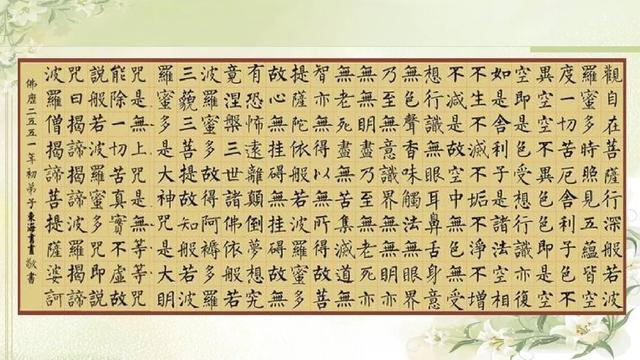 觀自在菩薩行深般若波
羅蜜多時照見五蘊皆空
度一切苦厄舍利子色不
異空空不異色色即是空
空即是色受想行識亦復
如是舍利子是諸法空相
不生不滅不垢不淨不增
不減是故空中無色無受
想行識無眼耳鼻舌身意
無色聲香味觸法無眼界
乃至無意識界無無明亦
無無明盡乃至無老死亦
無老死盡無苦集滅道無
智亦無得以無所得故菩
提薩陀依般若波羅蜜多
故心無挂礙無挂礙故無
有恐怖遠離顛倒夢想究
竟涅槃三世諸佛依般若
波羅蜜多故得阿耨多羅
三藐三菩提故知般若波
羅蜜多是大神咒是大明
咒是無上咒是無等等咒
能除一切苦真實不虛故
說般若波羅蜜多咒即說
咒曰揭諦揭諦波羅揭諦
波羅僧揭諦菩提薩婆訶
佛曆二五五一年初弟子東海書畫敬書